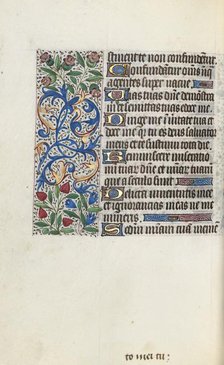 etenim te non confundentur
Confundantur om̄s iniq̄
agentes super uacue
Vias tuas dn̄e demōstra
m̄ et semitas tuas edoce me
Dirige me in ueritate tua et
doce me quia tu es deus saluator
meus et te sustinui tota die
Reminiscere miserationū
tuarum dn̄e et misericordiarū tuarum
que a seculo sunt
Delicta iuuentutis mee
et ignorancias meas ne me
mineris
Scdm̄ miam tuam memē
to mei tu: